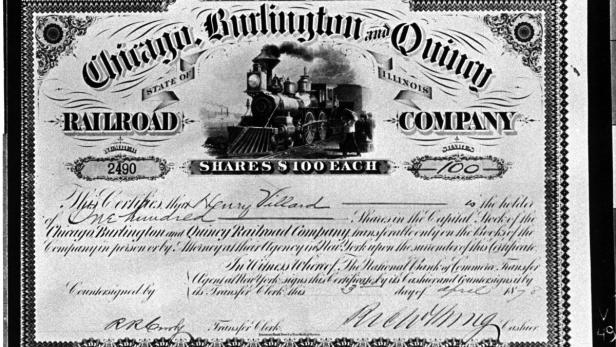 Chicago, Burlington and Quincy
STATE OF ILLINOIS
RAILROAD COMPANY
NUMBER SHARES
2490 100
SHARES $100 EACH
This Certifies that Henry Villard is the holder
of One hundred Shares in the Capital Stock of the
Chicago, Burlington and Quincy Railroad Company, transferable only on the Books of the
Company in person or by Attorney at their Agency in New York upon the surrender of this Certificate.
In Witness Whereof, The National Bank of Commerce, Transfer
Agent at New York signs this Certificate by its Cashier and Countersigns it by
Countersigned by its Transfer Clerk this 3 day of April 187
Transfer Clerk Cashier